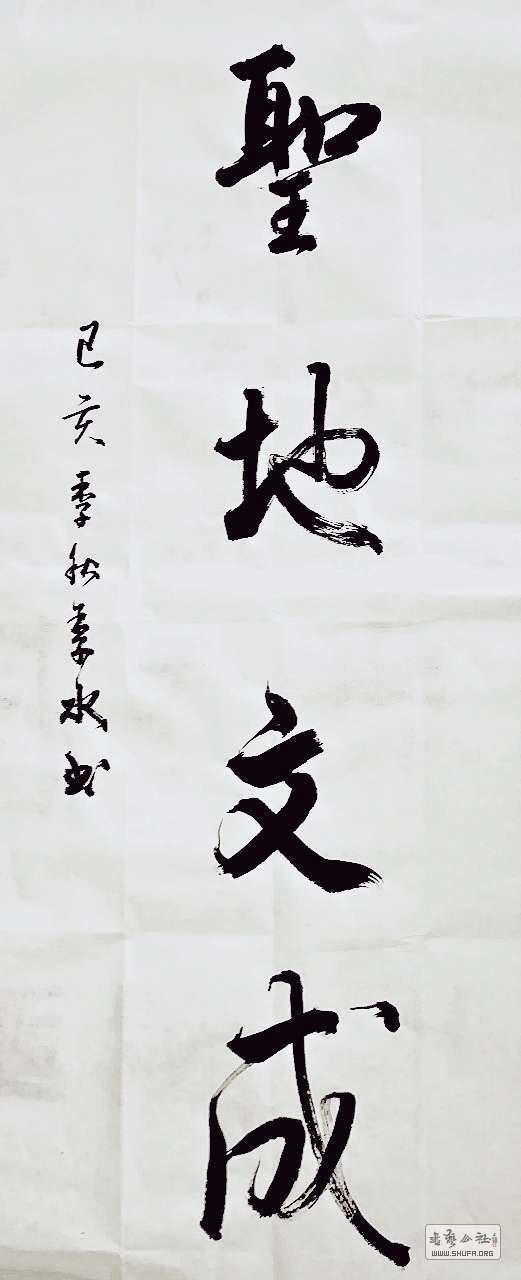 聖地文成
己亥季秋季水书
书艺公社
WWW.SHUFA.ORG